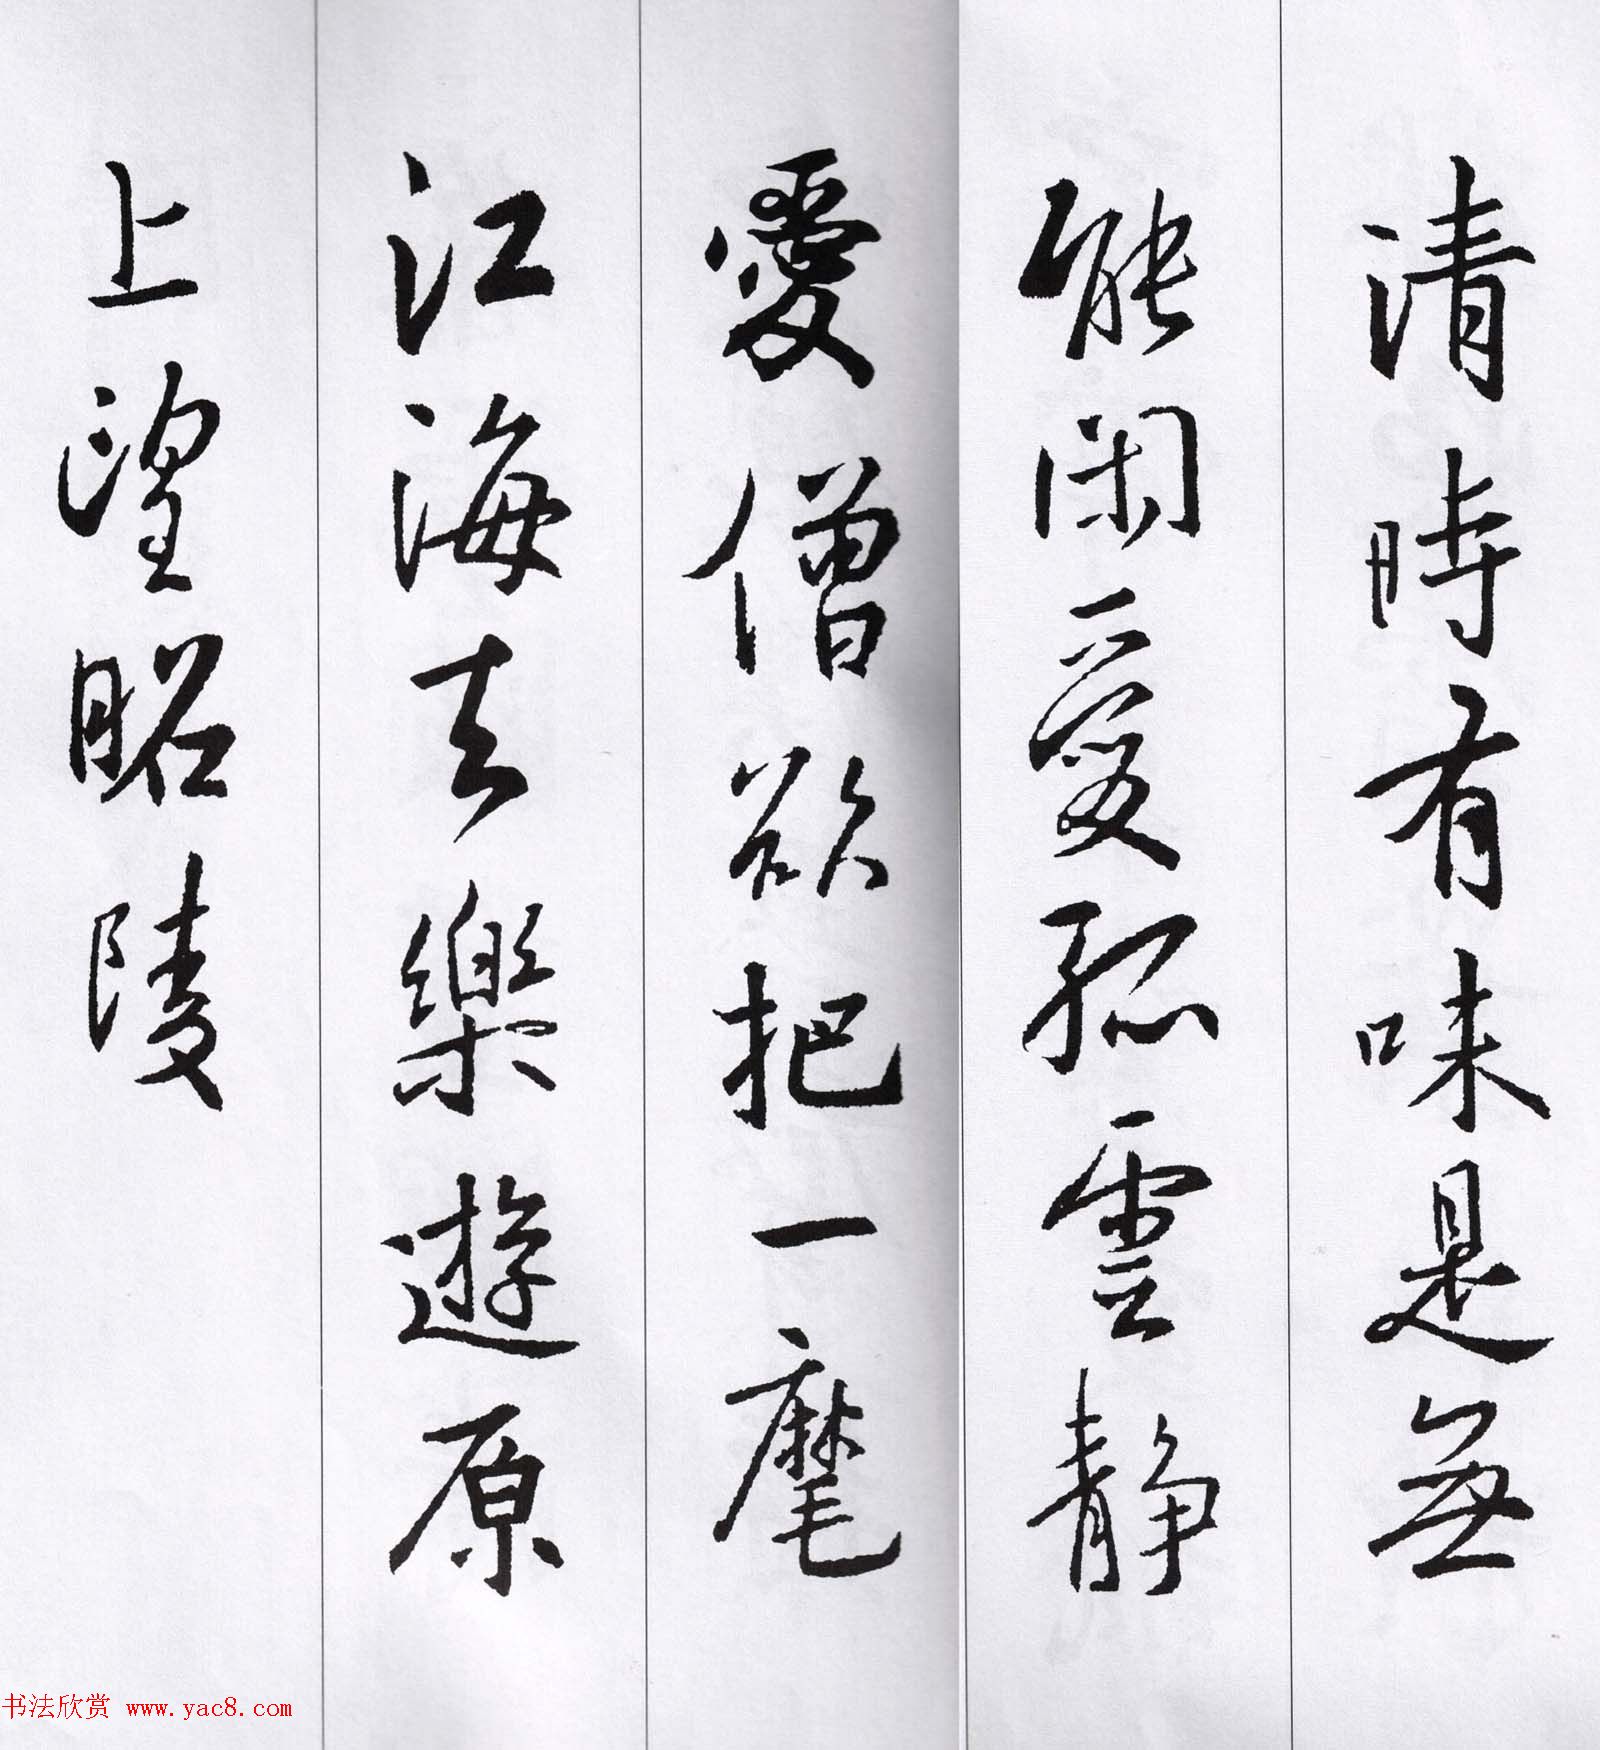 清時有味是無
能閑愛孤雲静
愛僧欲把一麾
江海去樂遊原
上望昭陵
书法欣赏 www.yac8.com